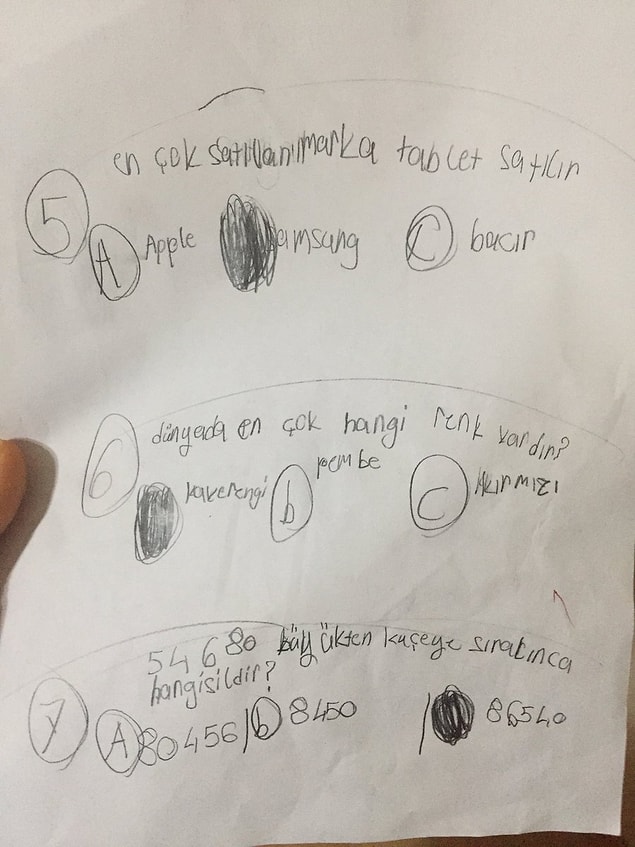 en çok satılanımarka tablet satılır
5
A Apple amsung C bacır
6 dünyada en çok hangi renk vardır?
kaverengi b pembe C kırmızı
7 54680 büyükten küçeye sıralınca
hangisildir?
A 80456 | b 8450 | 86540